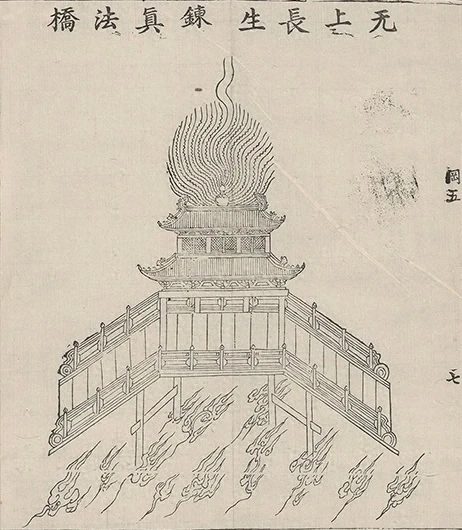 无上長生鍊眞法橋
岡五
七